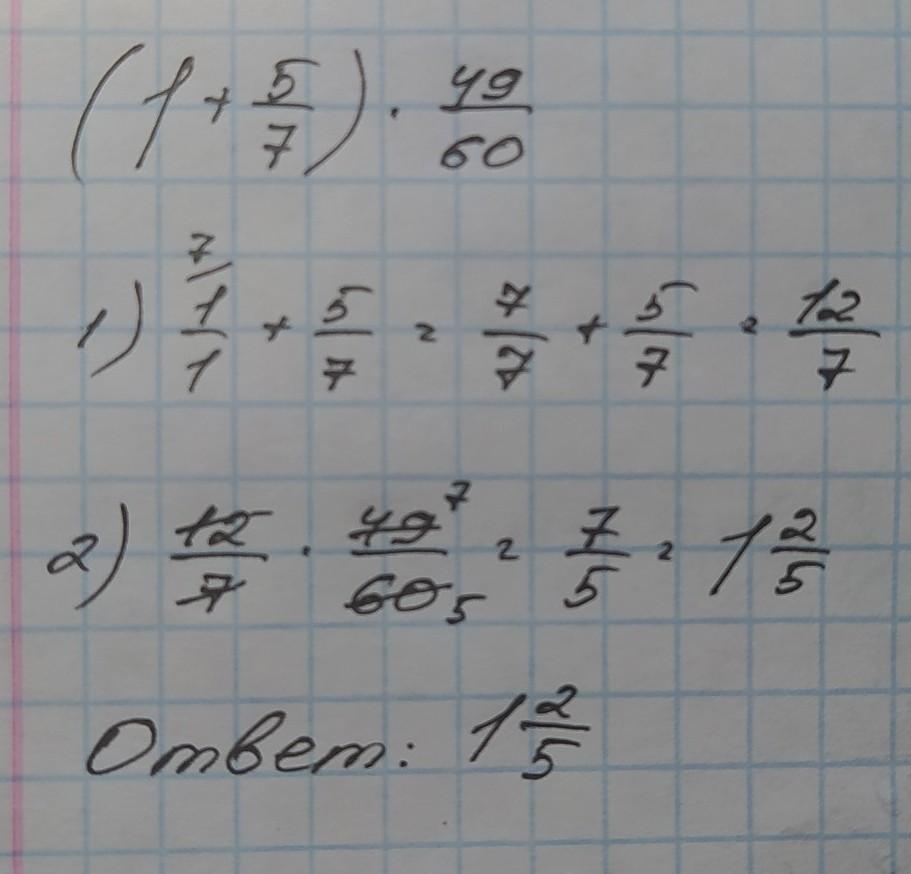 (1 + 5/7) · 49/60
1) 7/ 1/1 + 5/7 = 7/7 + 5/7 = 12/7
2) 12/7 · 49/60 7 5 = 7/5 = 1 2/5
Ответ: 1 2/5